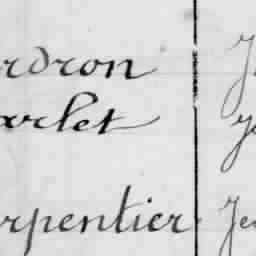 rdron
arlet
rpentier Je